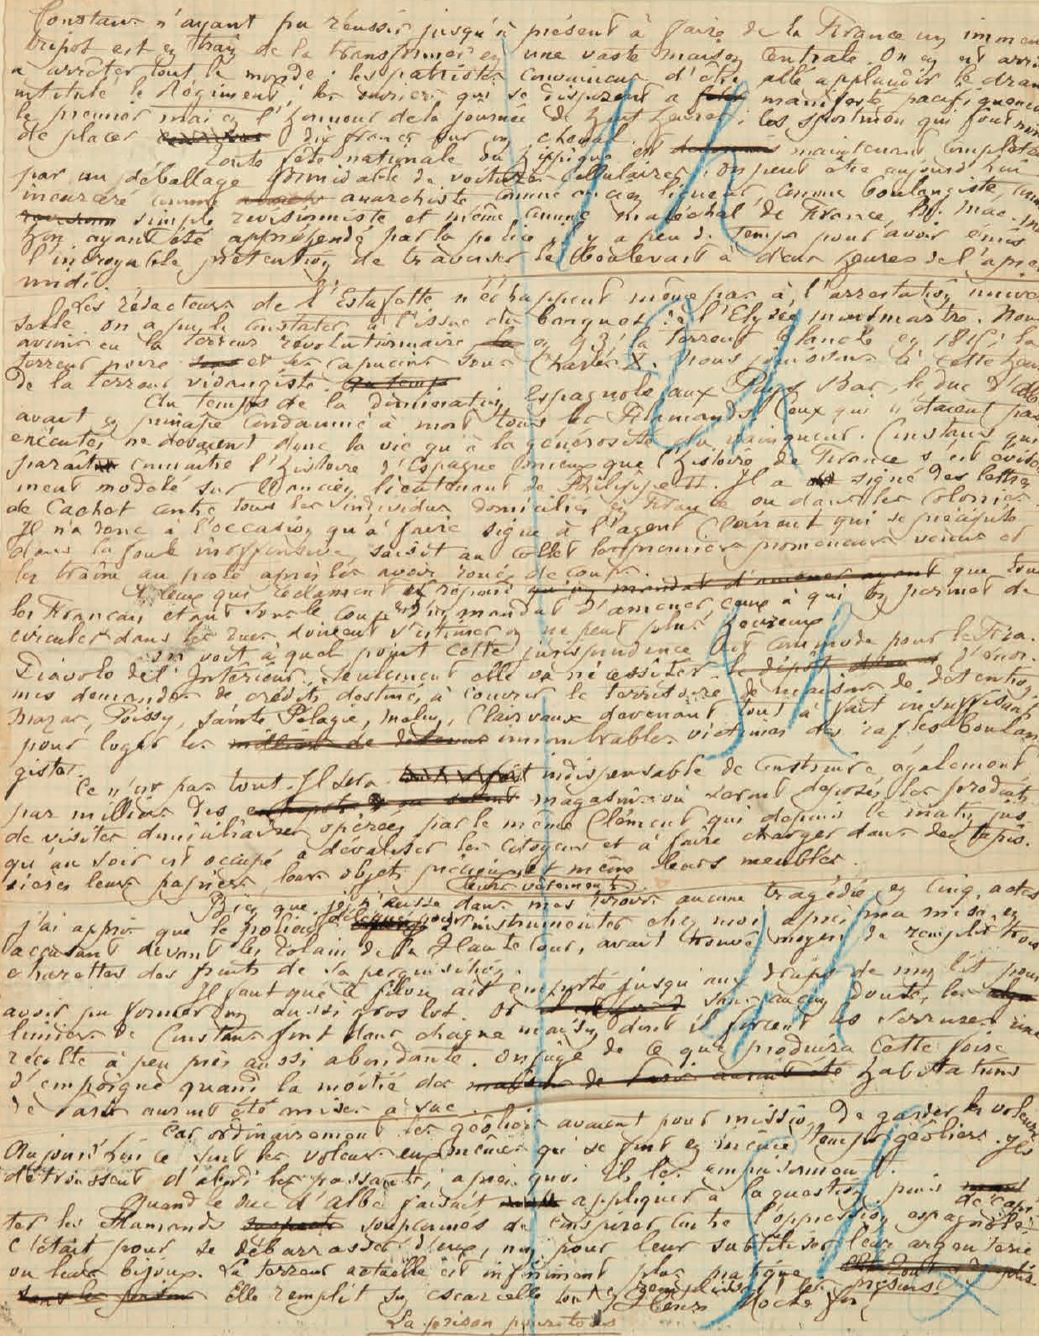 Constans n'ayant pu réussir jusqu'à présent à faire de la France un immense
tripot est en train de la transformer en une vaste maison centrale. On en est arrivé
à arrêter tout le monde : les patriotes convaincus d'être allé applaudir le drame
intitulé le Régiment ; les ouvriers qui se disposent à manifester pacifiquement
le premier mai en l'honneur de la journée de huit heures ; les sportmen qui
de placer dix francs sur un cheval.
Toute fête nationale ou hippique est maintenant complétée
par un déballage formidable de voitures cellulaires. On peut être aujourd'hui
incarcéré comme anarchiste comme comme boulangiste, comme
simple révisionniste et même comme maréchal de France, M. Mac-Ma
hon ayant été appréhendé par la police il y a peu de temps pour avoir émis
l'incroyable prétention de traverser le boulevard à deux heures de l'après
midi.
Les rédacteurs de l'Estafette n'échappent même pas à l'arrestation univer
selle on a pu le constater à l'issue du banquet de l'Elysée montmartre. Nous
avions eu la terreur révolutionnaire en 93, la terreur blanche en 1815, la
terreur noire et les capucins sous Charles X. Nous jouissons à cette heure
de la terreur vidangiste.
Au temps de la domination Espagnole aux Pays Bas, le duc d'Albe
avait en principe condamné à mort tous les Flamands. Ceux qui n'étaient pas
exécutés ne devaient donc la vie qu'à la générosité du vainqueur. Constans qui
paraît connaître l'histoire d'Espagne mieux que l'histoire de France s'est évidem
ment modelé sur l'ancien lieutenant de Philippe II. Il a signé des lettres
de cachet contre tous les individus domiciliés en France ou dans les Colonies.
Il n'a donc à l'occasion qu'à faire signe à l'agent Clément qui se précipite
dans la foule inoffensive, saisit au collet les premiers promeneurs venus et
les traîne au poste après les avoir roués de coups.
A ceux qui réclament il répond que tous
les Français étant sous le coup d'un mandat d'amener, ceux à qui on permet de
circuler dans les rues doivent s'estimer on ne peut plus heureux.
On voit à quel point cette jurisprudence est commode pour le Fra.
Diavolo de l'Intérieur. Seulement elle va nécessiter d'énor.
mes demandes de crédits destinés à couvrir le territoire de maisons de détention,
Mazas, Poissy, Sainte Pélagie, Melun, Clairvaux devenant tout à fait insuffisants
pour loger les innombrables victimes des rafles boulan
gistes.
Ce n'est pas tout. Il sera indispensable de construire également
par milliers des magasins où seront déposés les produits
de visites domiciliaires opérées par le même Clément qui depuis le matin jus.
qu'au soir est occupé à dévaliser les citoyens et à faire charger dans des tapis.
sières leurs papiers, leurs objets précieux et même leurs meubles.
leurs vêtements
Bien que je n'eusse dans mes tiroirs aucune tragédie en cinq actes
j'ai appris que le policier délégué pour instrumenter chez moi après ma mise en
accusation devant les de la Haute Cour, avait trouvé moyen de remplir trois
charettes des fruits de sa perquisition.
Il faut que ait emporté jusqu'aux draps de mon lit pour
avoir pu former un aussi gros lot. Or sans aucun doute, les
limiers de Constans font dans chaque maison dont ils forcent les serrures une
récolte à peu près aussi abondante. On juge de ce que produira cette foire
d'empoigne quand la moitié des habitations
de Paris auront été mises à sac.
Car ordinairement les geôliers avaient pour mission de garder les voleurs
Aujourd'hui ce sont les voleurs eux mêmes qui se font en même temps geôliers. Ils
détroussent d'abord les passants, après quoi ils les emprisonnent.
Quand le duc d'Albe faisait appliquer à la question puis décapi
ter les Flamands soupçonnés de conspirer contre l'oppression espagnole
c'était pour se débarrasser d'eux, non pour leur subtiliser leur argenterie
ou leurs bijoux. La terreur actuelle est infiniment plus pratique
Elle remplit son escarcelle tout en remplissant les prisons.
Henri Rochefort
La prison pour tous